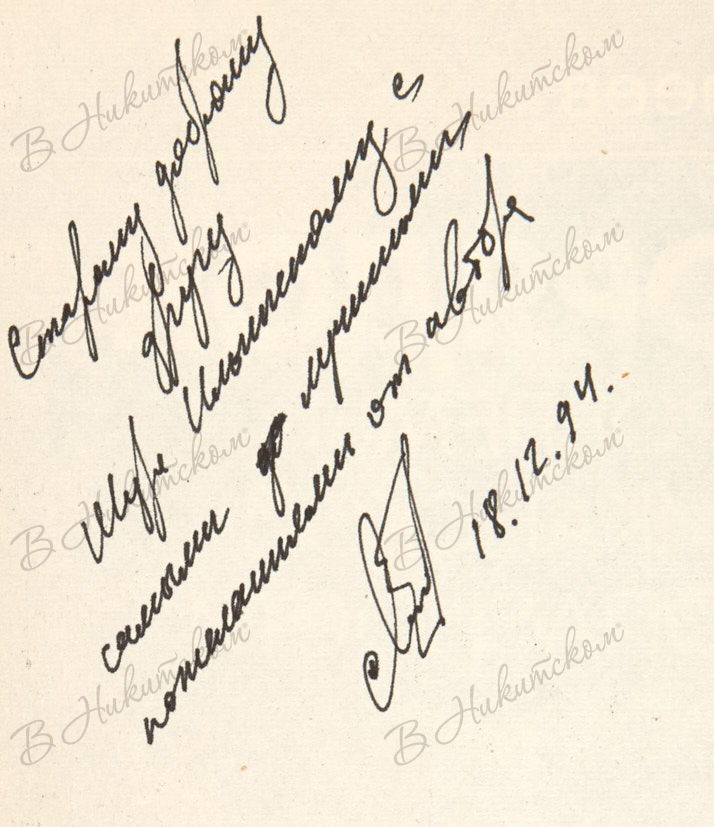 Старому доброму
другу
Шуре с
самыми лучшими
пожеланиями от автора
18.12.94.
В Никитском
В Никитском
В Никитском
В Никитском
В Никитском
В Никитском
В Никитском
В Никитском